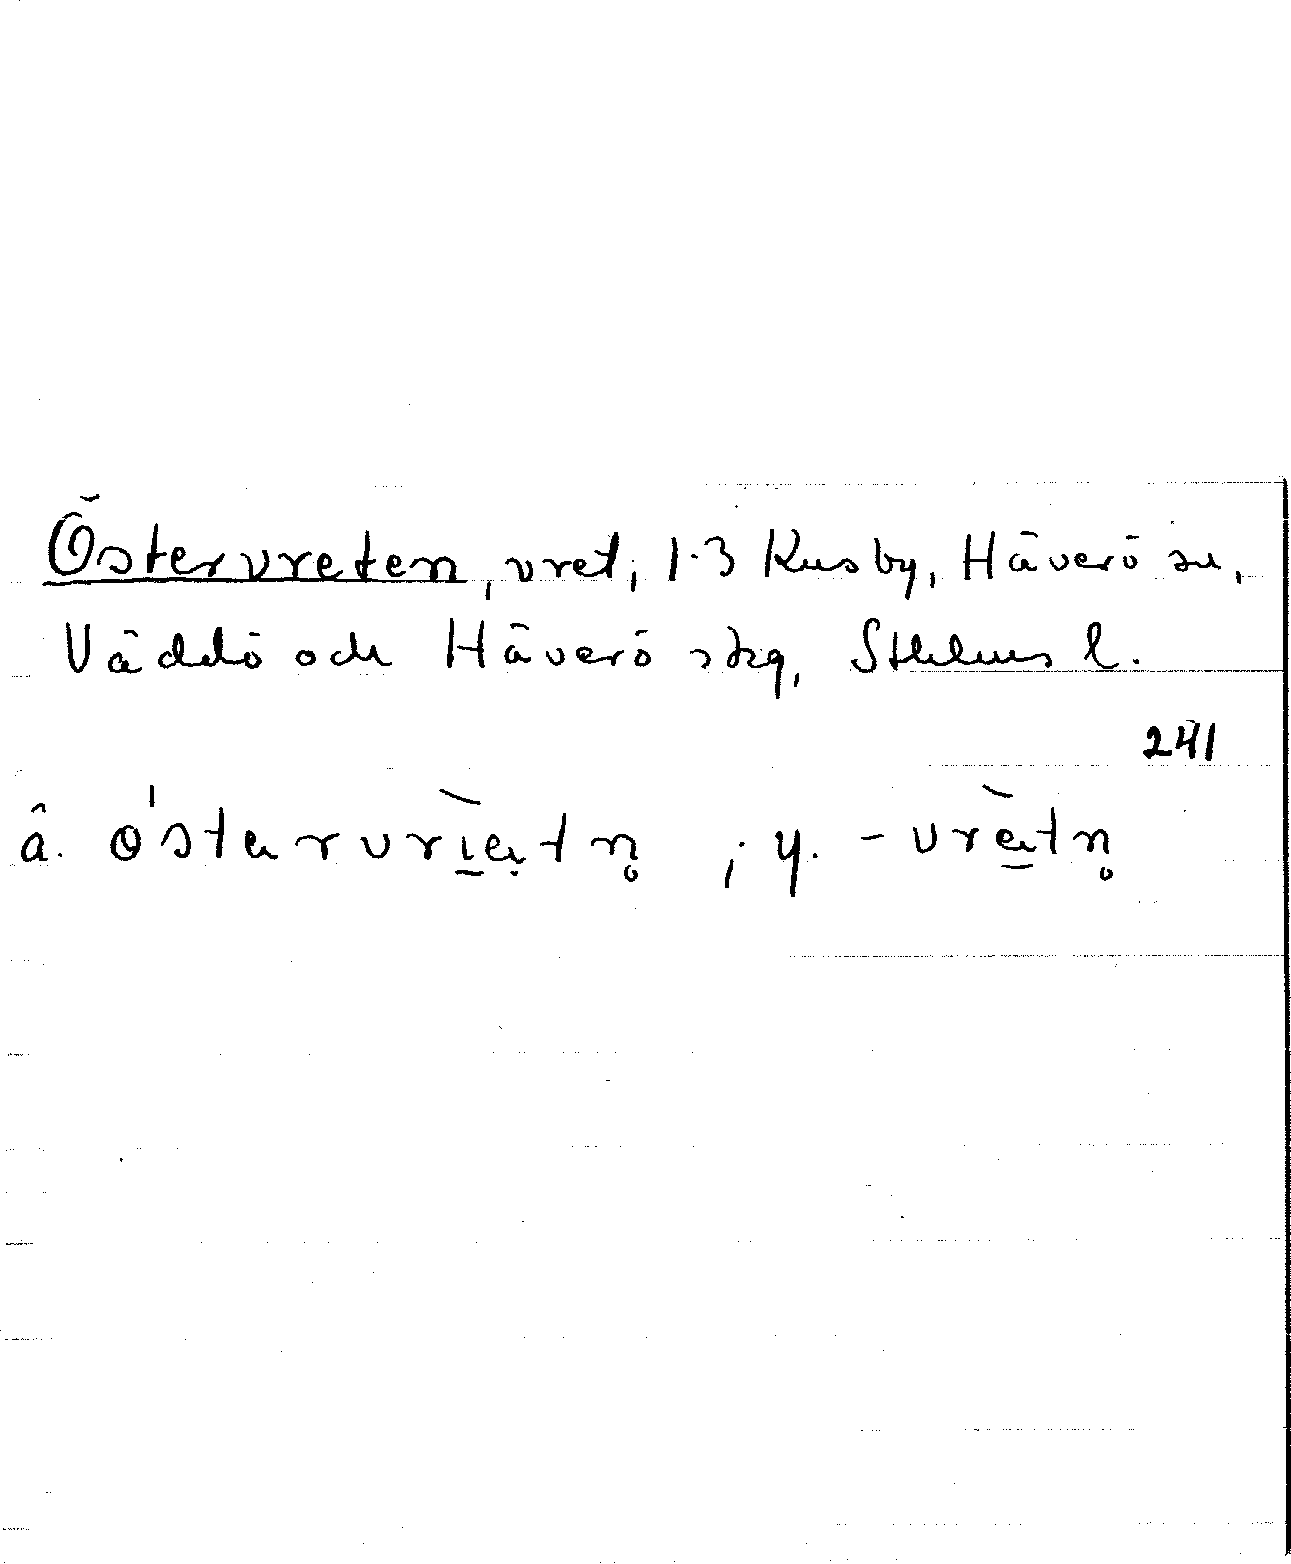 Östervreten, vret, 1-3 Kusby, Häverö sn,
Väddö och Häverö skg, Sthlms l.
241
ä. östarvrıatn̥ ; y. -vrätn̥